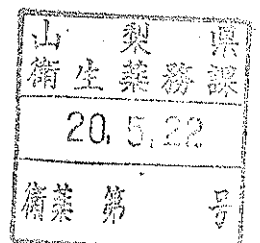 山梨県
衛生薬務課
20. 5. 22
衛薬第 号